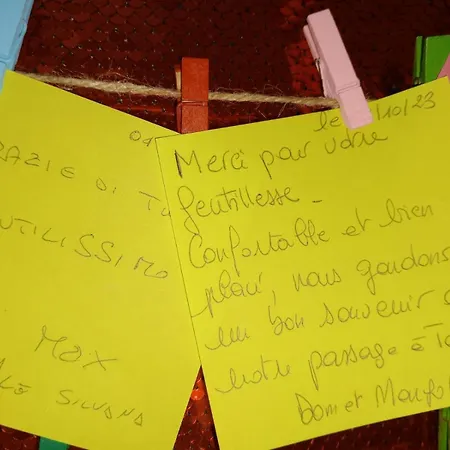 GRAZIE DI TU
GENTILISSIMO
MAX
SILVANA
le /10/23
Merci pour votre
gentillesse.
Confortable et bien
placé, nous gardons
un bon souvenir
notre passage à To
Dom et